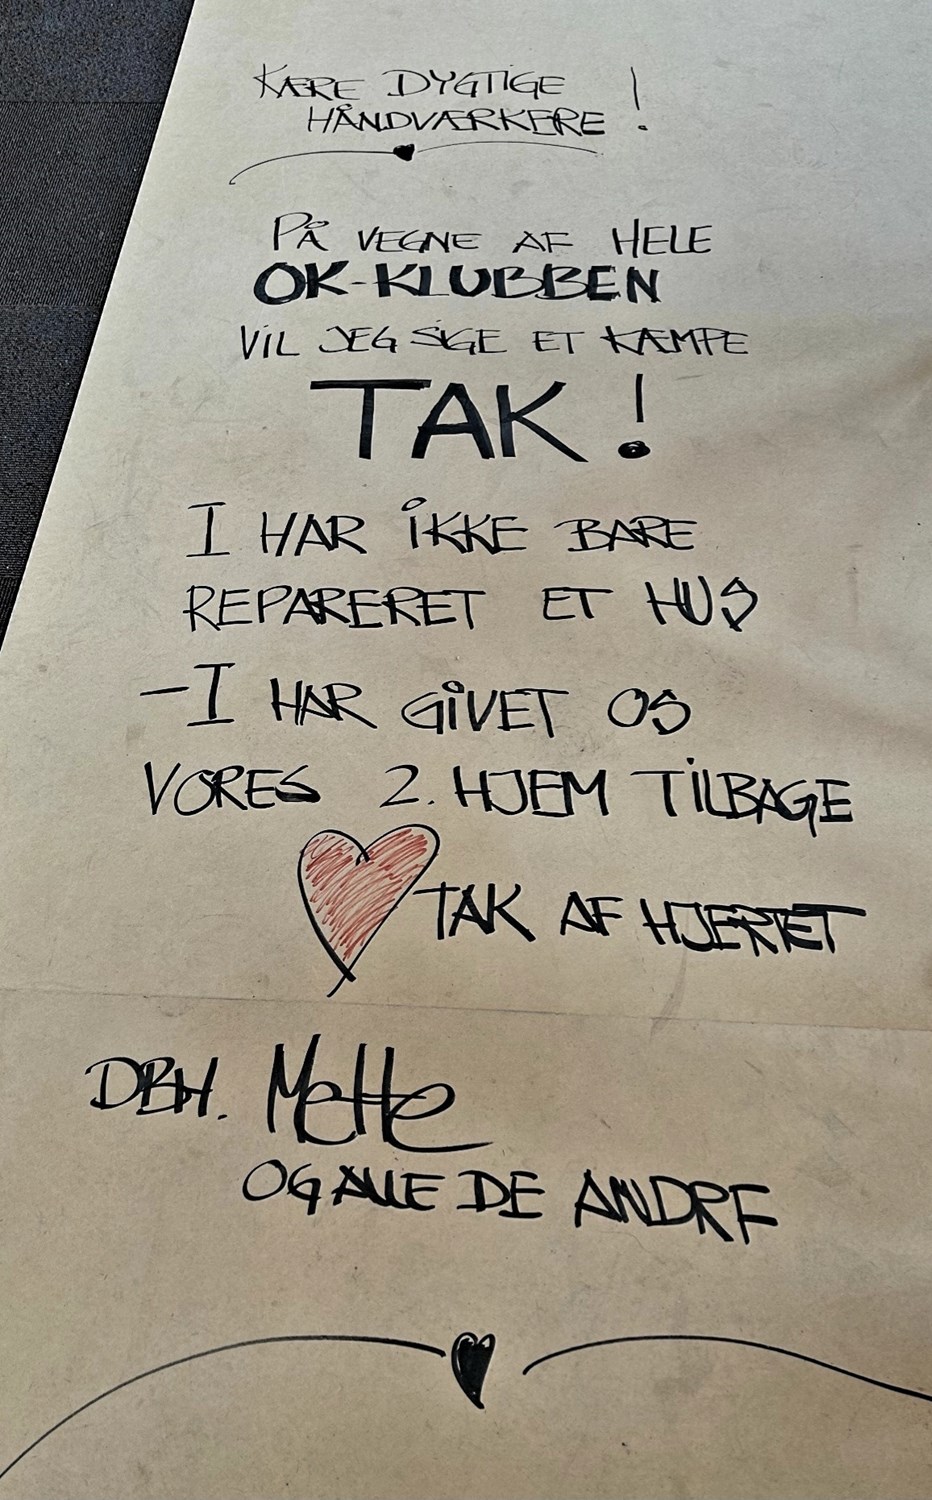 KÆRE DYGTIGE
HÅNDVÆRKERE !
PÅ VEGNE AF HELE
OK-KLUBBEN
VIL JEG SIGE ET KÆMPE
TAK !
I HAR IKKE BARE
REPARERET ET HUS
- I HAR GIVET OS
VORES 2. HJEM TILBAGE
TAK AF HJERTET
DBH. Mette
OG ALLE DE ANDRE